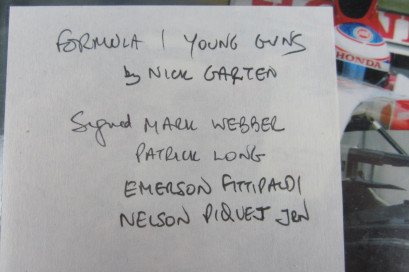 FORMULA 1 YOUNG GUNS
by NICK GARTEN
Signed MARK WEBBER
PATRICK LONG
EMERSON FITTIPALDI
NELSON PIQUET JNR